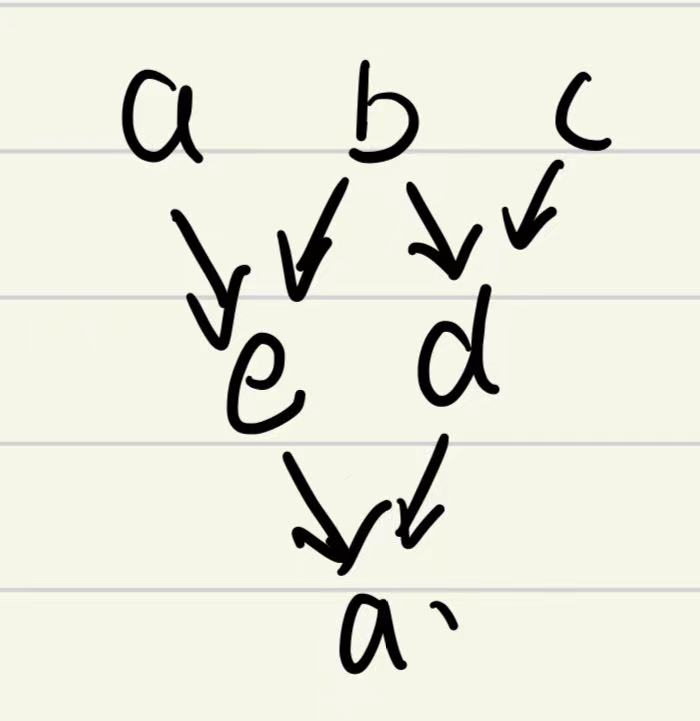 a b c
e d
a、